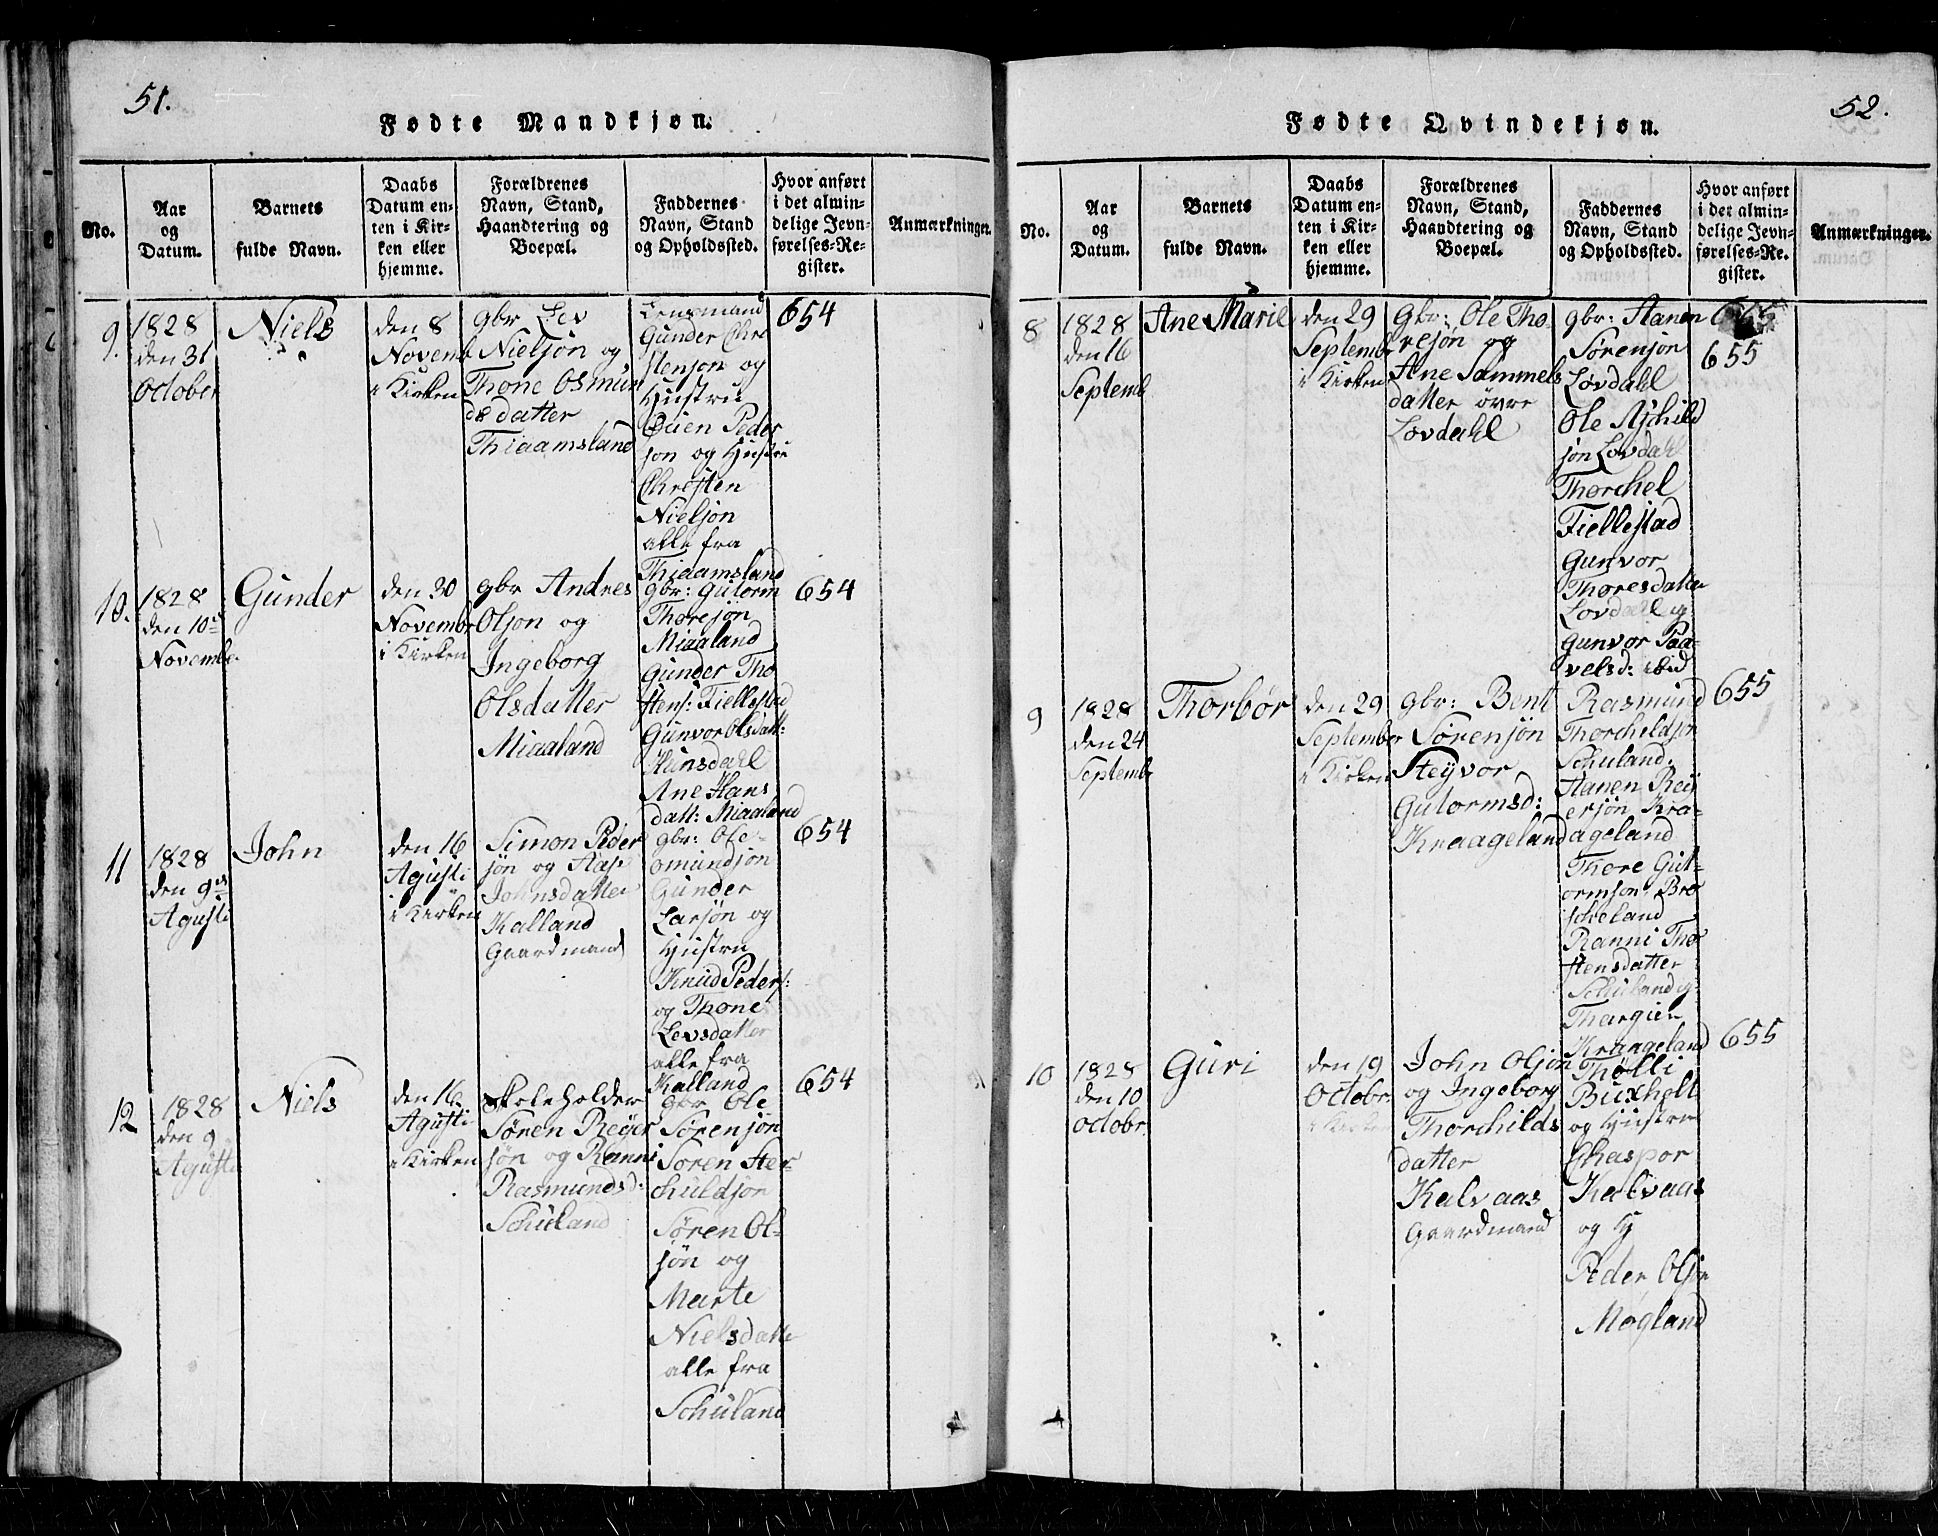 51.
Fødte Mandkjøn.
No.
Aar
og
Datum.
Barnets
fulde Navn.
Daabs
Datum en-
ten i Kir-
ken eller
hjemme.
Forældrenes
Navn, Stand,
Haandtering og
Boepæl.
Faddernes
Navn, Stand
og Opholdssted.
Hvor anført
i det almin-
delige Jevn-
førelses-Re-
gister.
Anmærkninger.
9.
1828
den 31
October
Niels
den 8
Novemb
i Kirken
gbr Lev
Nielsøn og
Thone Osmun
ds datter
Thiaamsland
Lensmand
Gunder Chri
stensøn og
Hustru
Ouen Peder
søn og Hustru
Christen
Nielsøn
alle fra
Thiaamsland
654
10.
1828
den 10de
November
Gunder
den 30
Novembr
i Kirken
gbr Andres
Olsøn og
Ingeborg
Olsdatter
Miaaland
gbr: Gutorm
Thoresøn
Miaaland
Gunder Tho
stens: Fiellestad
Gunvor Olsdatt:
Hunsdahl
Ane Hans
datt: Miaaland
654
11
1828
den 9de
Agusti
John
den 16
Agusti
i Kirken
Simon Peder
søn og Aase
Johnsdatter
Kalland
Gaardmand
gbr: Ole
omundsøn
Gunder
Larsøn og
Hustru
Knud Peders:
og Thone
Levsdatter
alle fra
Kalland
654
12
1828
den 9
Agusti
Niels
den 16
Agusti
i Kirken
Skoleholder
Søren Reyer
søn og Ranni
Rasmundsd:
Schuland
gbr Ole
Sørensøn
Soren Her-
chuldsøn
Søren Ol-
søn og
Marte
Nielsdatte
alle fra
Schuland
654
52.
Fødte Qvindekjøn.
No.
Aar
og
Datum.
Barnets
fulde Navn.
Daabs
Datum en-
ten i Kir-
ken eller
hjemme.
Forældrenes
Navn, Stand,
Haandtering og
Boepæl.
Faddernes
Navn, Stand
og Opholdssted.
Hvor anført
i det almin-
delige Jevn-
førelses-Re-
gister.
Anmærkninger.
8
1828
den 16
Septemb
Ane Marie
den 29
Septembr
i Kirken
Gbr: Ole Tho
resøn og
Ane Sammels
datter øvre
Lovdahl
gbr: Aanen
Sørensøn
Løvdahl
Ole Aschild
søn Lovdahl
Thorchel
Fiellestad
Gunvor
Thoresdatter
Lovdahl og
Gunvor Paa-
velsd: ibid
655
9
1828
den 24
Septemb
Thorbør
den 29
September
i Kirken
gbr: Bent
Sørensøn
Steyvor
Gutormsd:
Kraageland
Rasmund
Thorcheldsøn
Schuland.
Aanen Rey
ersøn Kra-
ageland
Thore Gut-
ormsøn Bro
scheland
Ranni Tho
stensdatter
Schuland og
Thargier
Kraageland
655
10
1828
den 10
octobr.
Guri
den 19
Octobr.
i Kirken
John Olsøn
og Ingeborg
Thorchilds
datter
Kalvaas
Gaardmand
Thølli
Buxholt
og Hustru
Chaspor
Kalvaas
og Hy
Peder Olsøn
Møgland
655